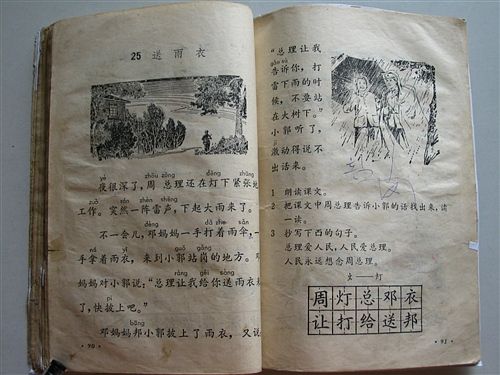 25 送雨衣
zhōu zǒng dēng zhāng
夜很深了，周总理还在灯下紧张地
zuò rán zhèn
工作。突然一阵雷声，下起大雨来了。
dèng
不一会儿，邓妈妈一手打着雨伞，一
ná yī gǎng
手拿着雨衣，来到小郭站岗的地方。邓
ràng gěi sòng
妈妈对小郭说：“总理让我给你送雨衣
pī
了，快披上吧。”
bāng
邓妈妈帮小郭披上了雨衣，又说
·90·
“总理让我
gào sù
告诉你，打
雷下雨的时
候，不要站
在大树下。”
小郭听了，
激动得说不
出话来。
1 朗读课文。
2 把课文中周总理告诉小郭的话找出来，读
一读。
3 抄写下西的句子。
总理爱人民，人民爱总理。
人民永远想念周总理。
火——灯
周灯总邓衣
让打给送邦
·91·